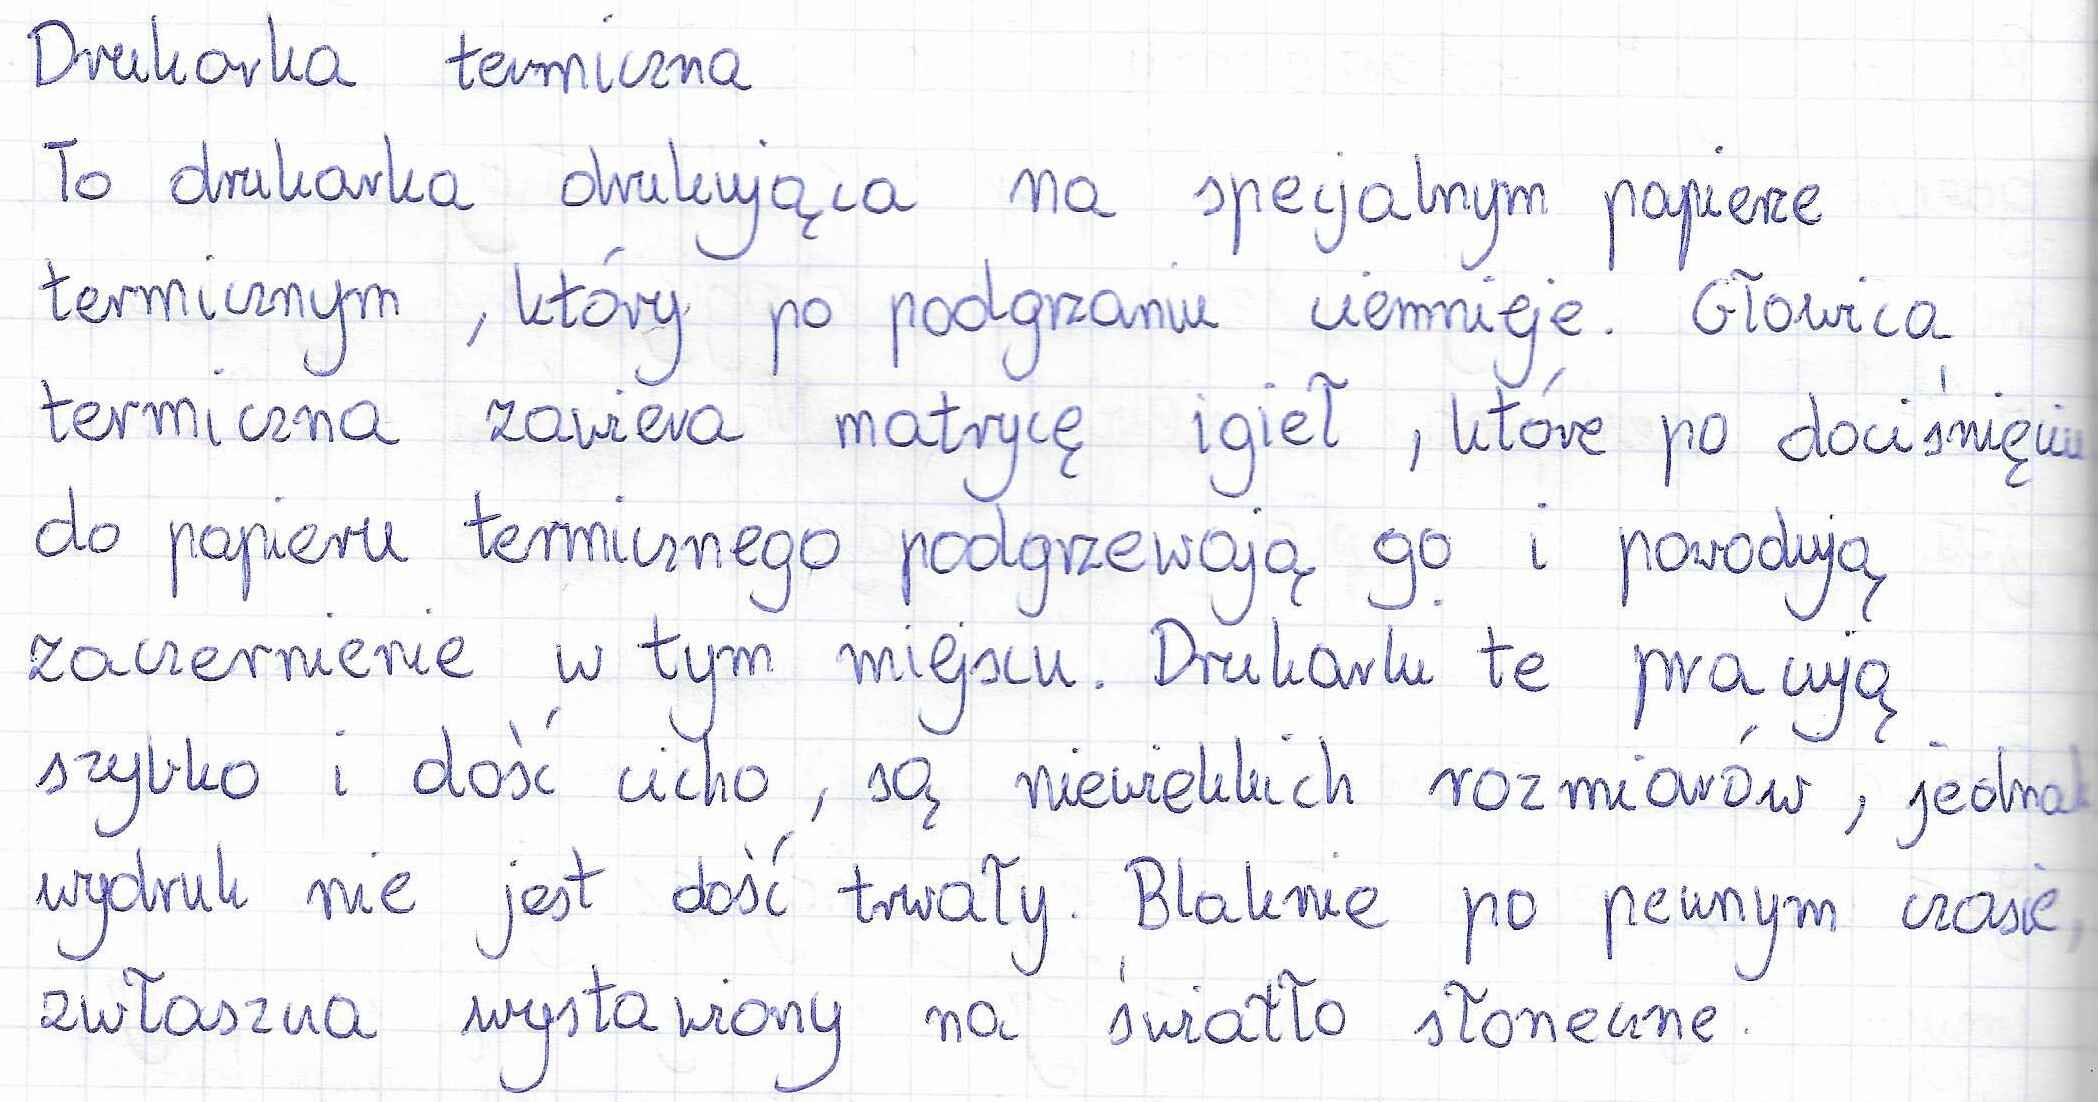 Drukarka termiczna
To drukarka drukująca na specjalnym papierze
termicznym, który po podgrzaniu ciemnieje. Głowica
termiczna zawiera matrycę igieł, które po dociśnięciu
do papieru termicznego podgrzewają go i powodują
zaczernienie w tym miejscu. Drukarki te pracują
szybko i dość cicho, są niewielkich rozmiarów, jednak
wydruk nie jest dość trwały. Blaknie po pewnym czasie,
zwłaszcza wystawiony na światło słoneczne.